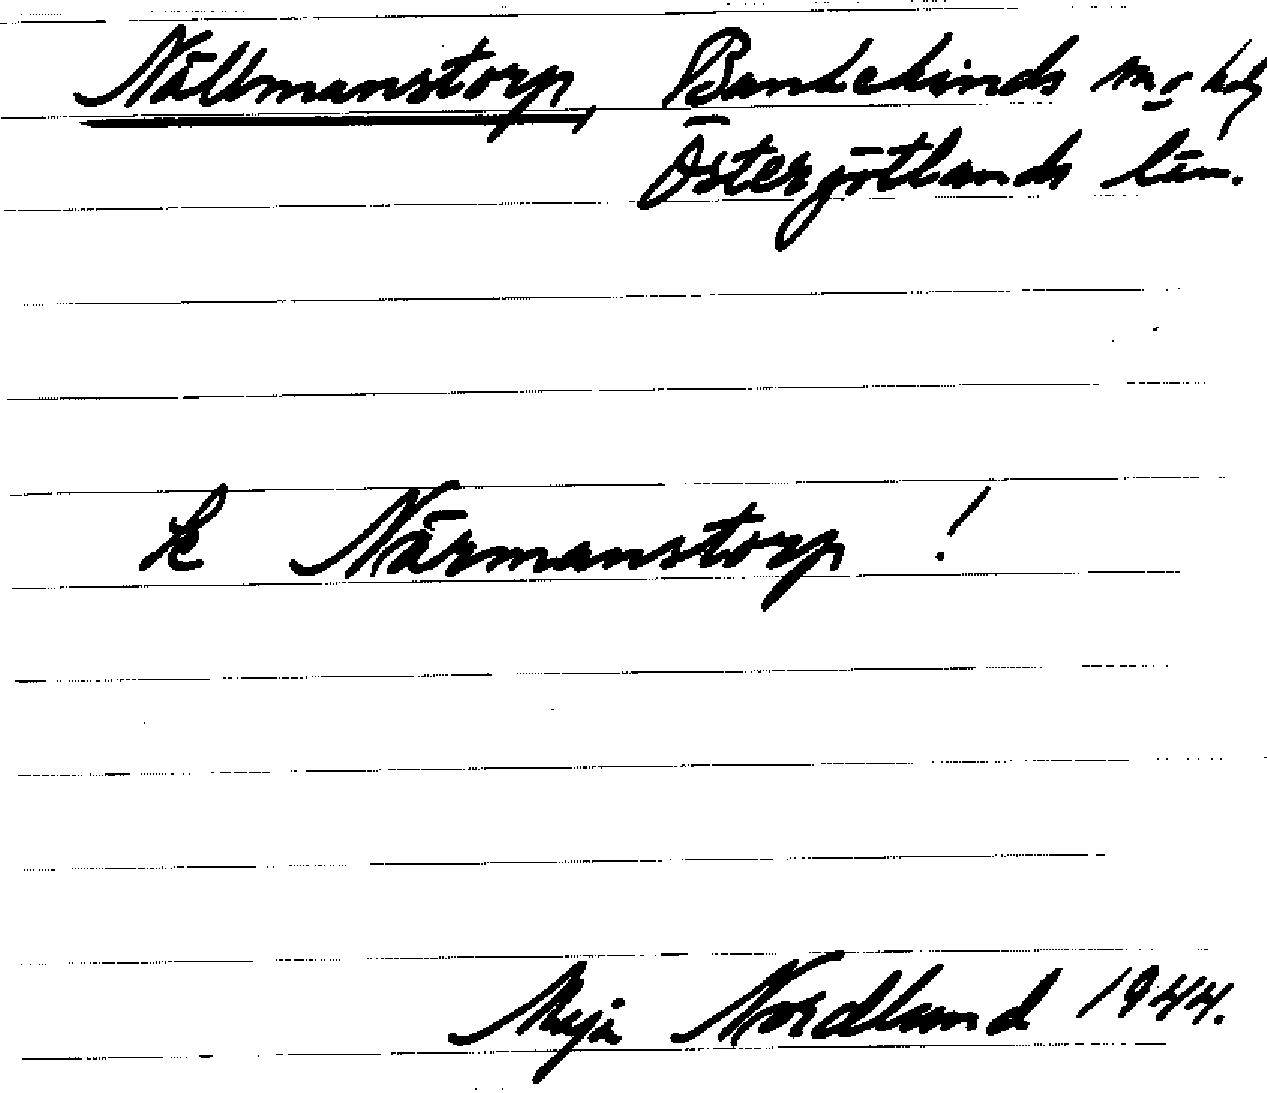 Nällmanstorp, Bankekinds sn o hd,
Östergötlands län.
Närmanstorp !
Maja Nordland 1944.